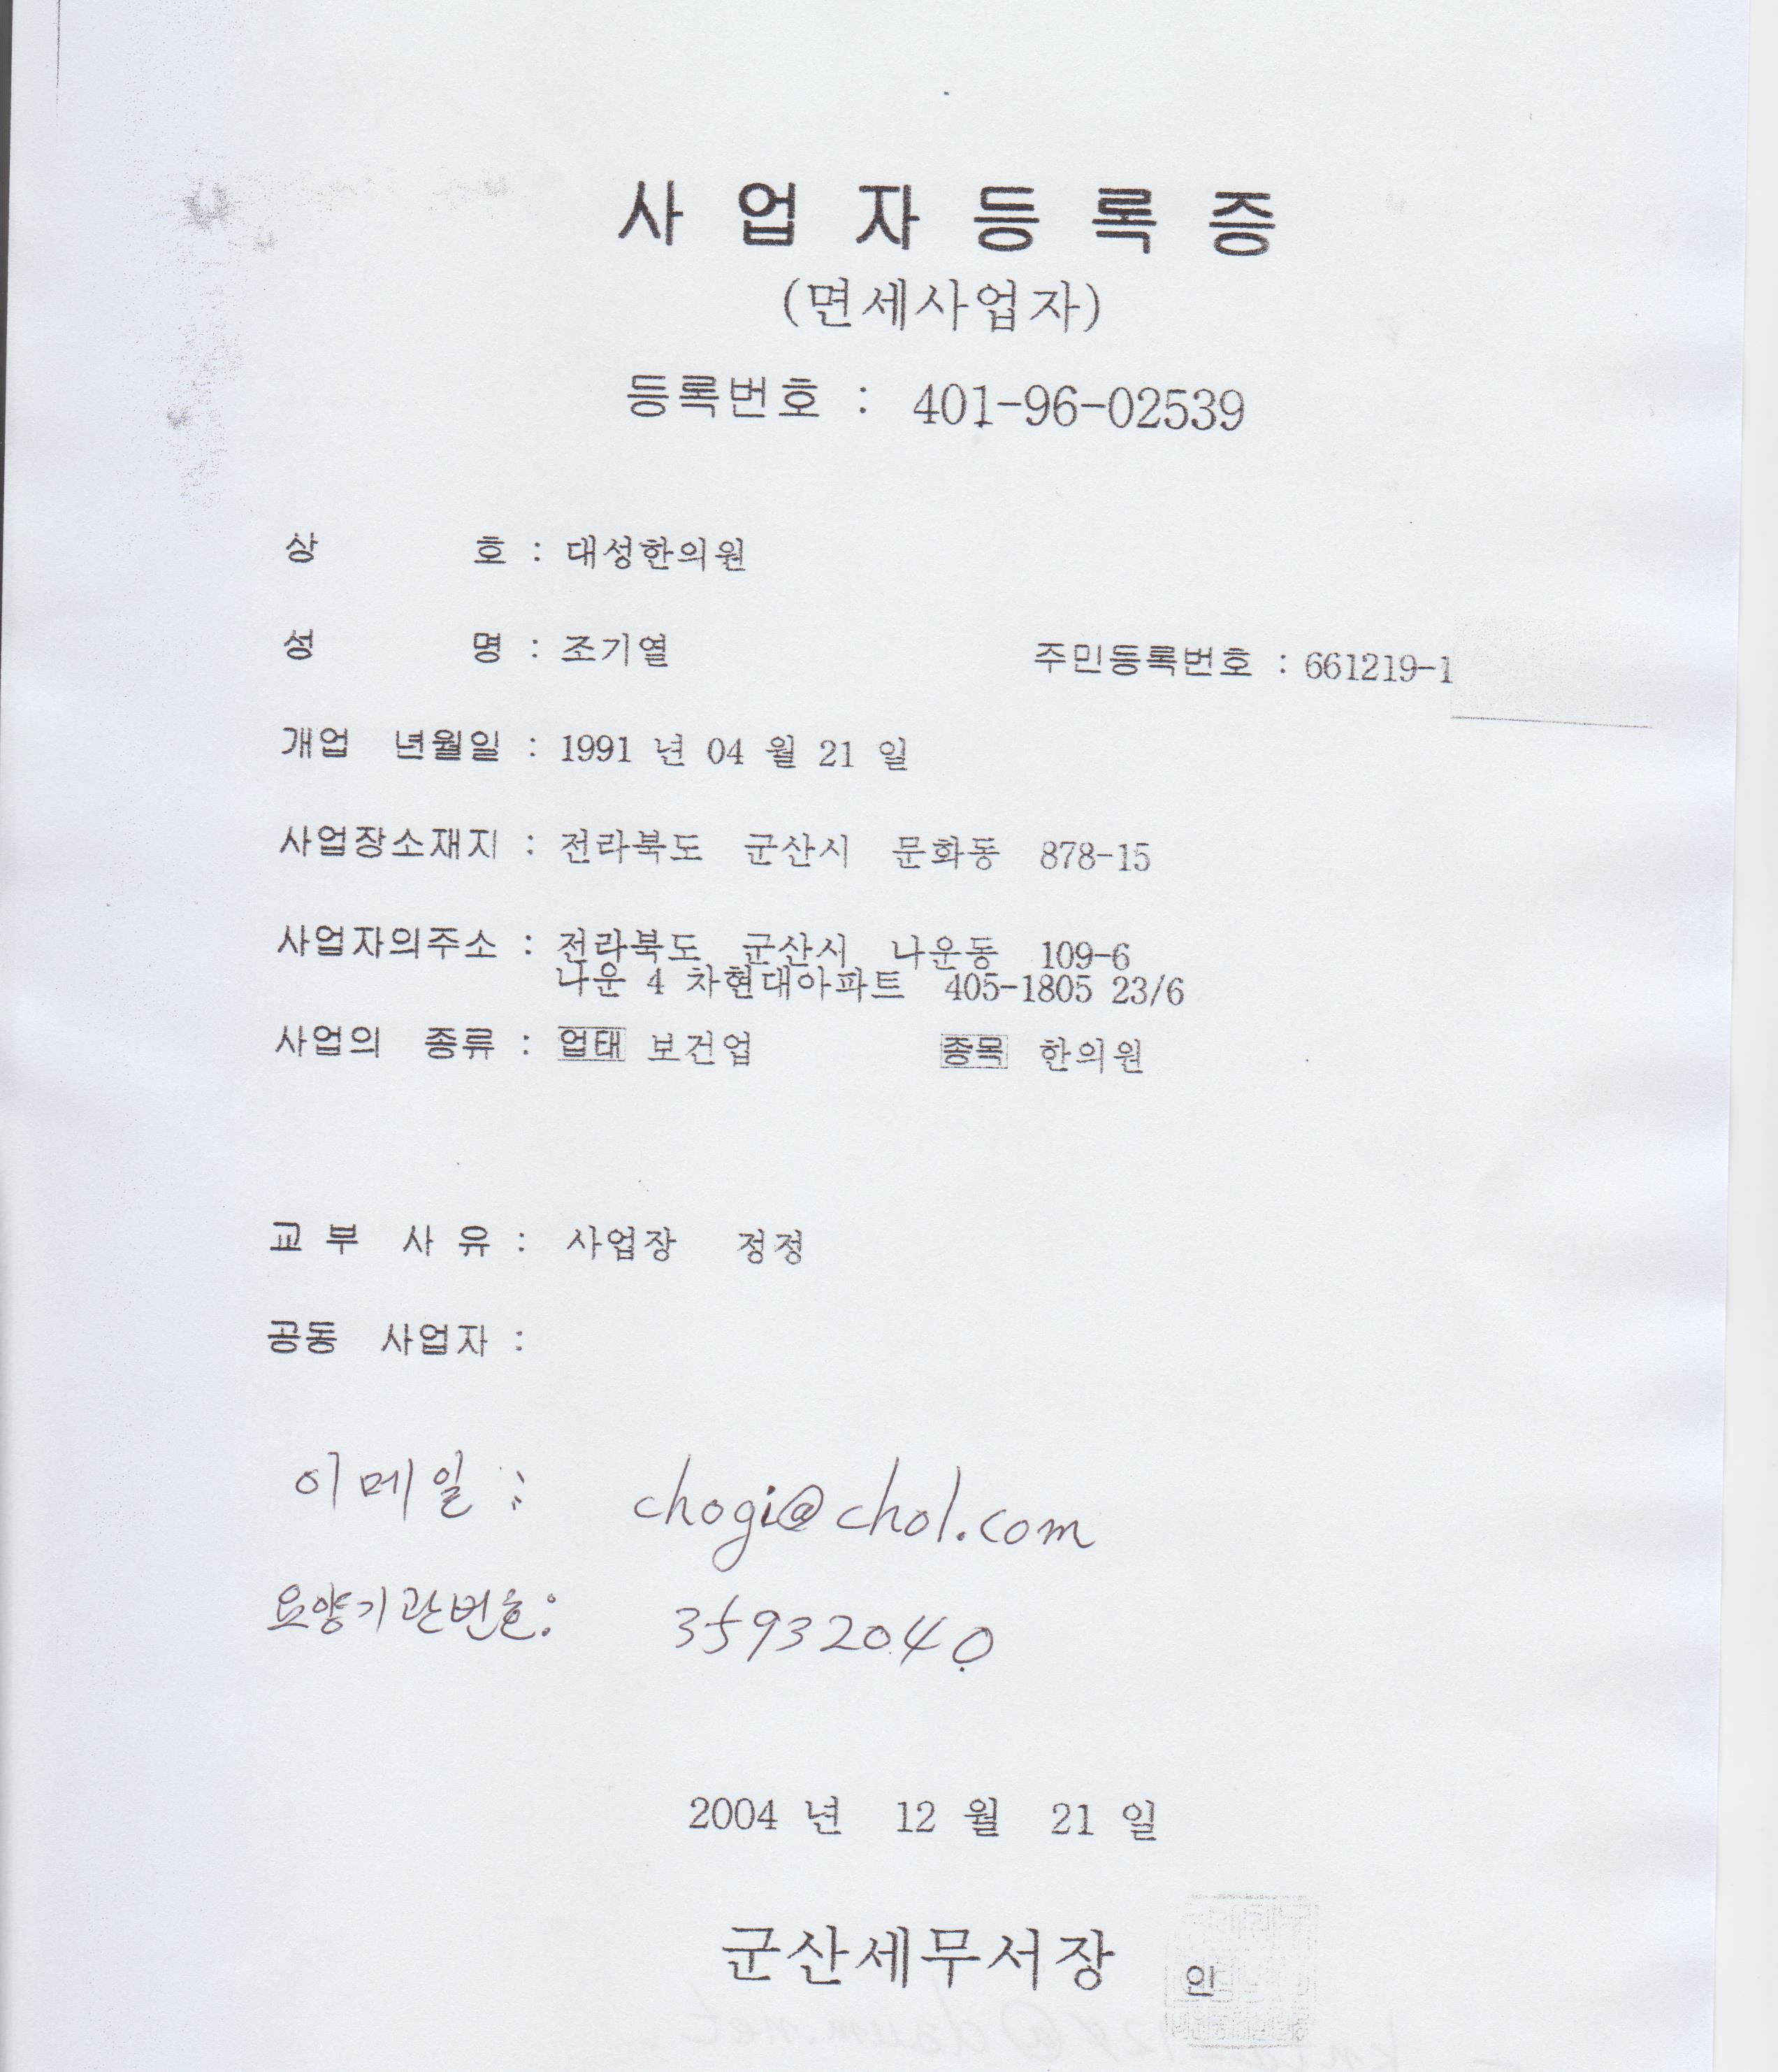 사업자등록증
(면세사업자)
등록번호 : 401-96-02539
상 호 : 대성한의원
성 명 : 조기열 주민등록번호 : 661219-1
개업 년월일 : 1991 년 04 월 21 일
사업장소재지 : 전라북도 군산시 문화동 878-15
사업자의주소 : 전라북도 군산시 나운동 109-6
나운 4 차현대아파트 405-1805 23/6
사업의 종류 : 업태 보건업 종목 한의원
교 부 사 유 : 사업장 정정
공동 사업자 :
이메일 : chogi@chol.com
요양기관번호: 35932040
2004 년 12 월 21 일
군산세무서장 인